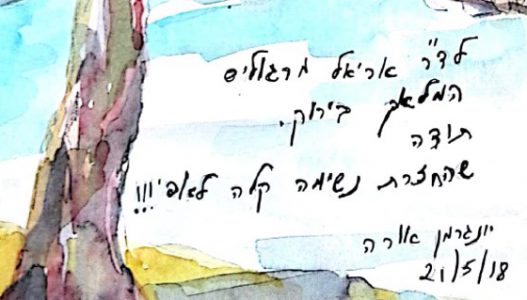 לד"ר אריאל מרגוליס
המלאך בירוק.
תודה
שהחזרת נשימה קלה לאפי!!!
יונגרמן אורה
21/5/18